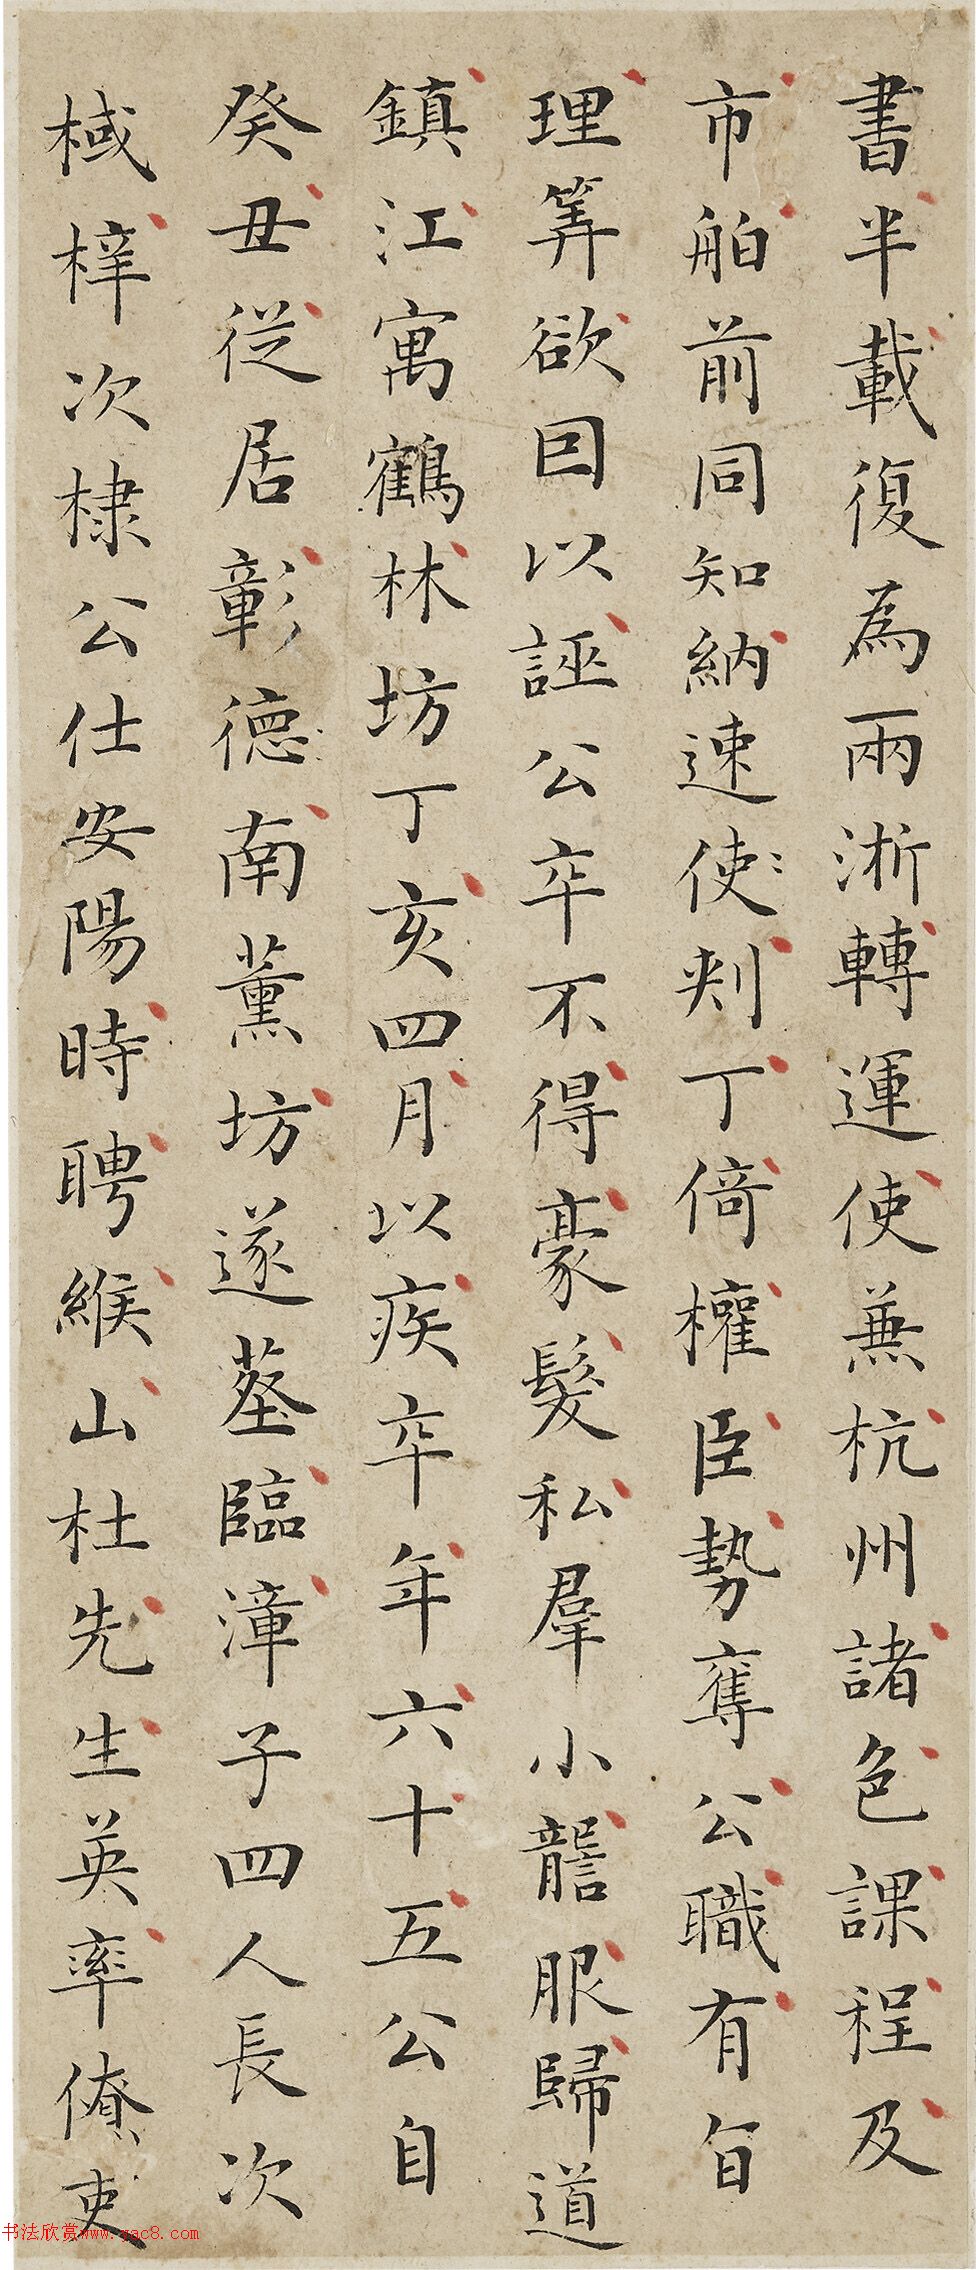 書半載復為兩淅轉運使兼杭州諸色課程及
市舶前同知納速使剌丁倚權臣勢奪公職有旨
理筭欲囙以誣公卒不得豪髮私羣小讋服歸道
鎮江寓鶴林坊丁亥四月以疾卒年六十五公自
癸丑從居彰德南薰坊遂塟臨漳子四人長次
棫梓次棣公仕安陽時聘緱山杜先生英率僚吏
书法欣赏www.yac8.com